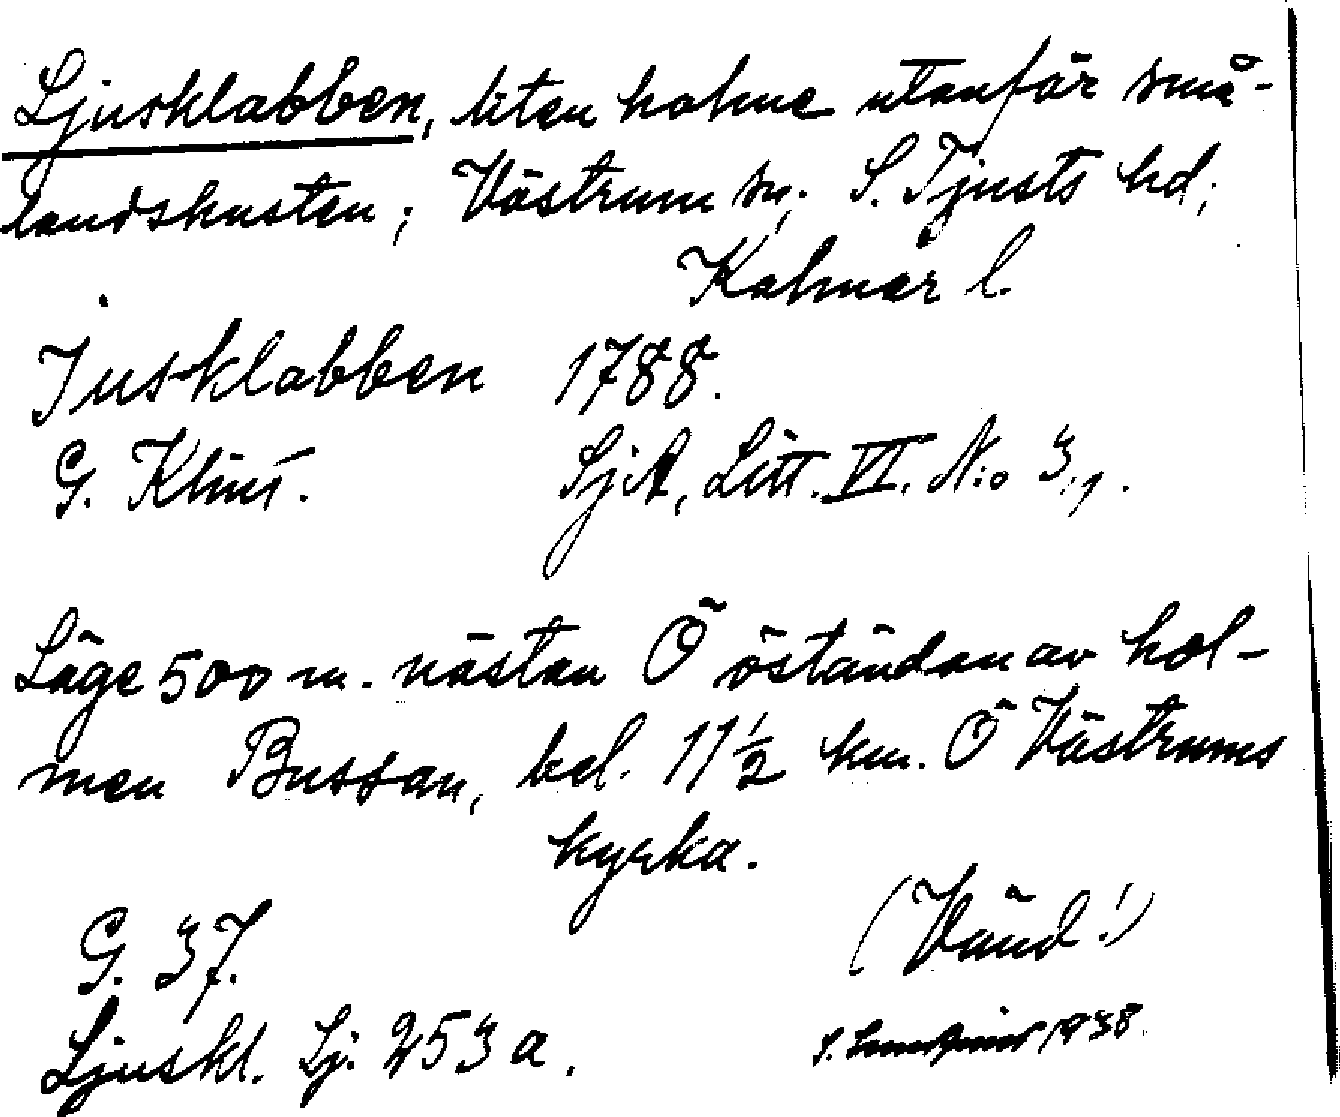 Ljusklabben, liten holme utanför små-
landskusten; Västrum sn; S. Tjusts hd;
Kalmar l.
Jusklabben 1788.
G. Klint. SjA, Litt. VI. N:o 3,1.
Läge 500 m. nästan Ö östandan av hol-
men Bussan, bel. 11½ km. Ö Västrums
kyrka.
(Vänd!)
G. 37.
Ljuskl. Sj. 253 a.
1938